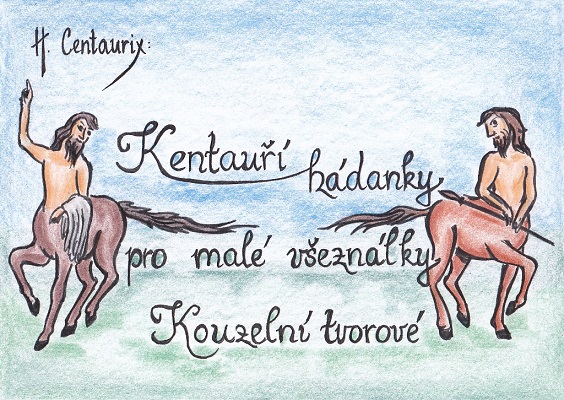 H. Centaurix:
Kentauří hádanky
pro malé všeználky
Kouzelní tvorové